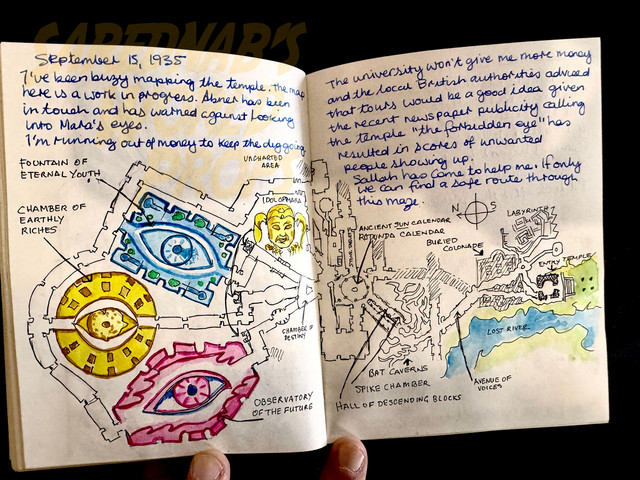 SABERNAB'S
September 15, 1935
I've been buzy mapping the temple. The map
here is a work in progress. Abner has been
in touch and has warned against looking
into Mara's eyes.
I'm running out of money to keep the dig going.
FOUNTAIN OF
ETERNAL YOUTH
UNCHARTED
AREA
CHAMBER OF
EARTHLY
RICHES
IDOL OF MARA
CHAMBER OF
DESTINY
OBSERVATORY
OF THE FUTURE
The university won't give me more money
and the local British authorities adviced
that tours would be a good idea given
the recent newspaper publicity calling
the temple "the forbidden eye" has
resulted in scores of unwanted
people showing up.
Sallah has come to help me. If only
we can find a safe route through
this maze.
N S
LABYRINTH
ANCIENT SUN CALENDAR
ROTUNDA CALENDAR
BURIED
COLONADE
ENTRY TEMPLE
LOST RIVER
BAT CAVERNS
AVENUE OF
VOICES
SPIKE CHAMBER
HALL OF DESCENDING BLOCKS